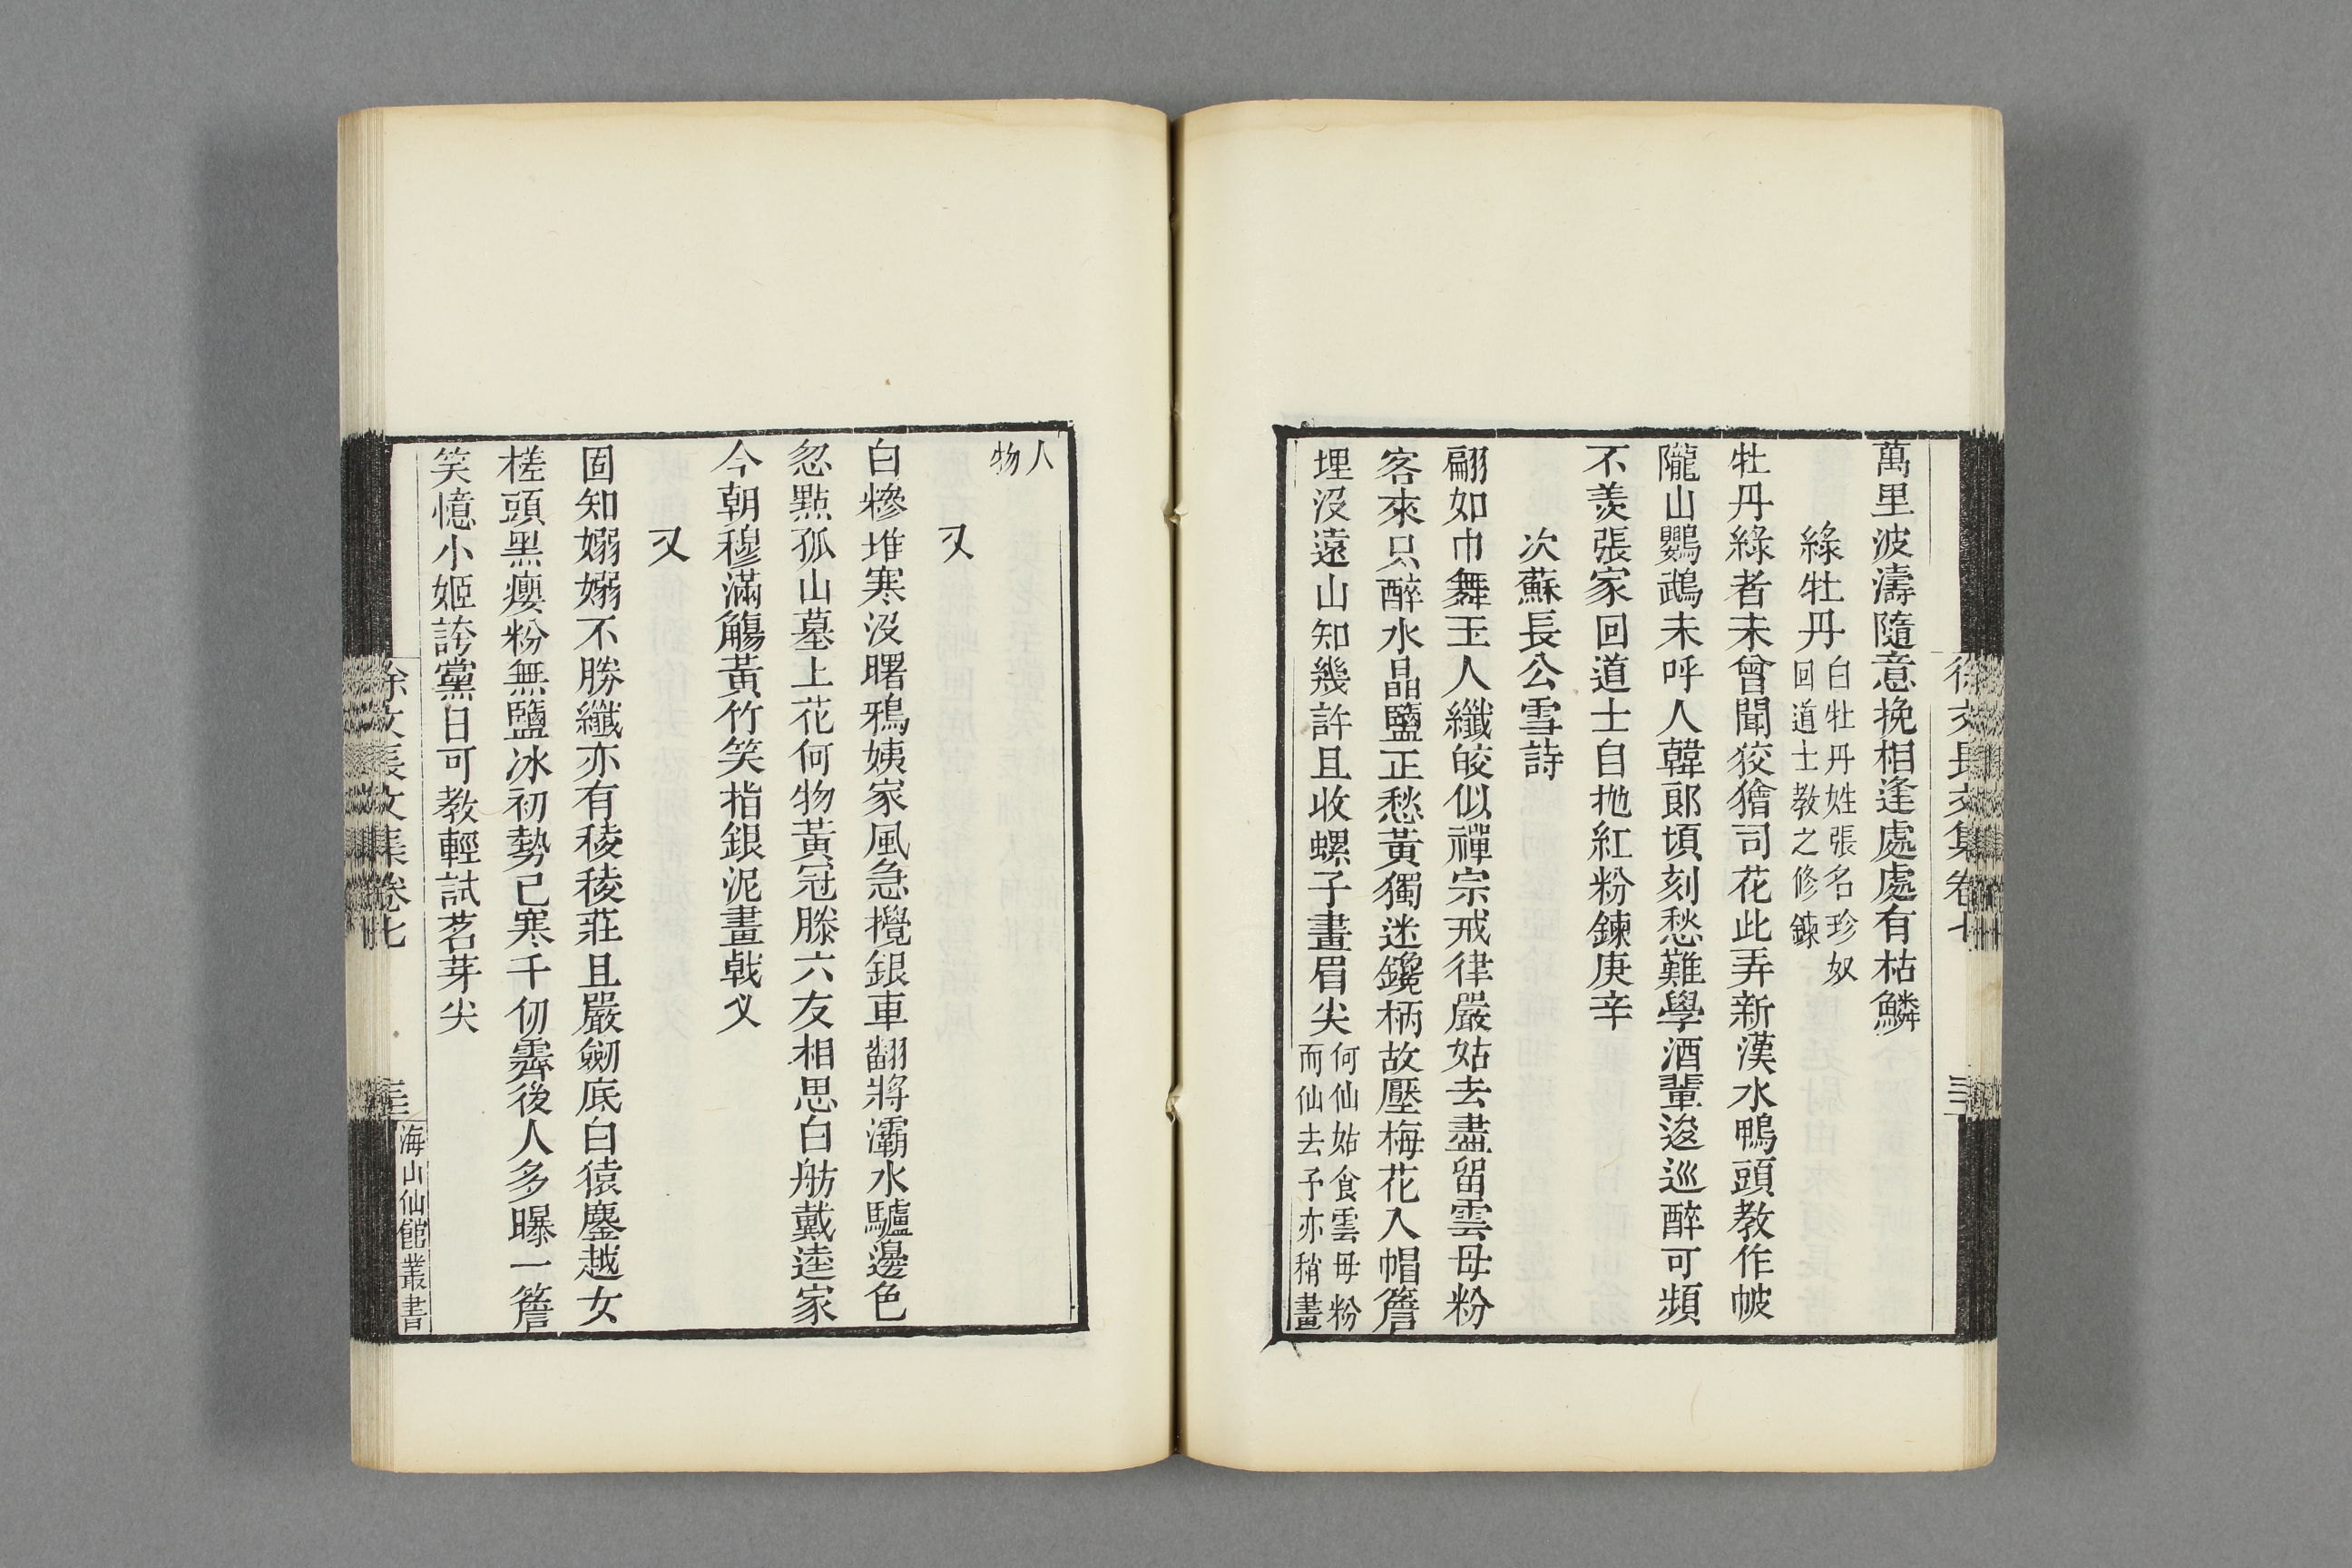 萬里波濤隨意挽相逢處處有枯鱗
綠牡丹白牡丹姓張名珍奴
回道士教之修鍊
牡丹綠者未曾聞狡獪司花此弄新漢水鴨頭教作帔
隴山鸚鵡未呼人韓郎頃刻愁難學酒輩逡巡醉可頻
不羨張家回道士自拋紅粉鍊庚辛
次蘇長公雪詩
翩如巾舞玉人纖皎似禪宗戒律嚴姑去盡留雲母粉
客來只醉水晶鹽正愁黃獨迷鑱柄故壓梅花入帽簷
埋沒遠山知幾許且收螺子畫眉尖何仙姑食雲母粉
而仙去予亦稍畫
人
物
又
白糝堆寒沒曙鴉姨家風急攪銀車翻將灞水驢邊色
忽點孤山墓上花何物黃冠滕六友相思白舫戴逵家
今朝穆滿觴黃竹笑指銀泥畫戟叉
又
固知嫋嫋不勝纖亦有稜稜莊且嚴劒底白猿鏖越女
槎頭黑癭粉無鹽冰初勢已寒千仞霽後人多曝一簷
笑憶小姬誇黨日可教輕試茗芽尖
徐文長文集卷七
海山仙館叢書